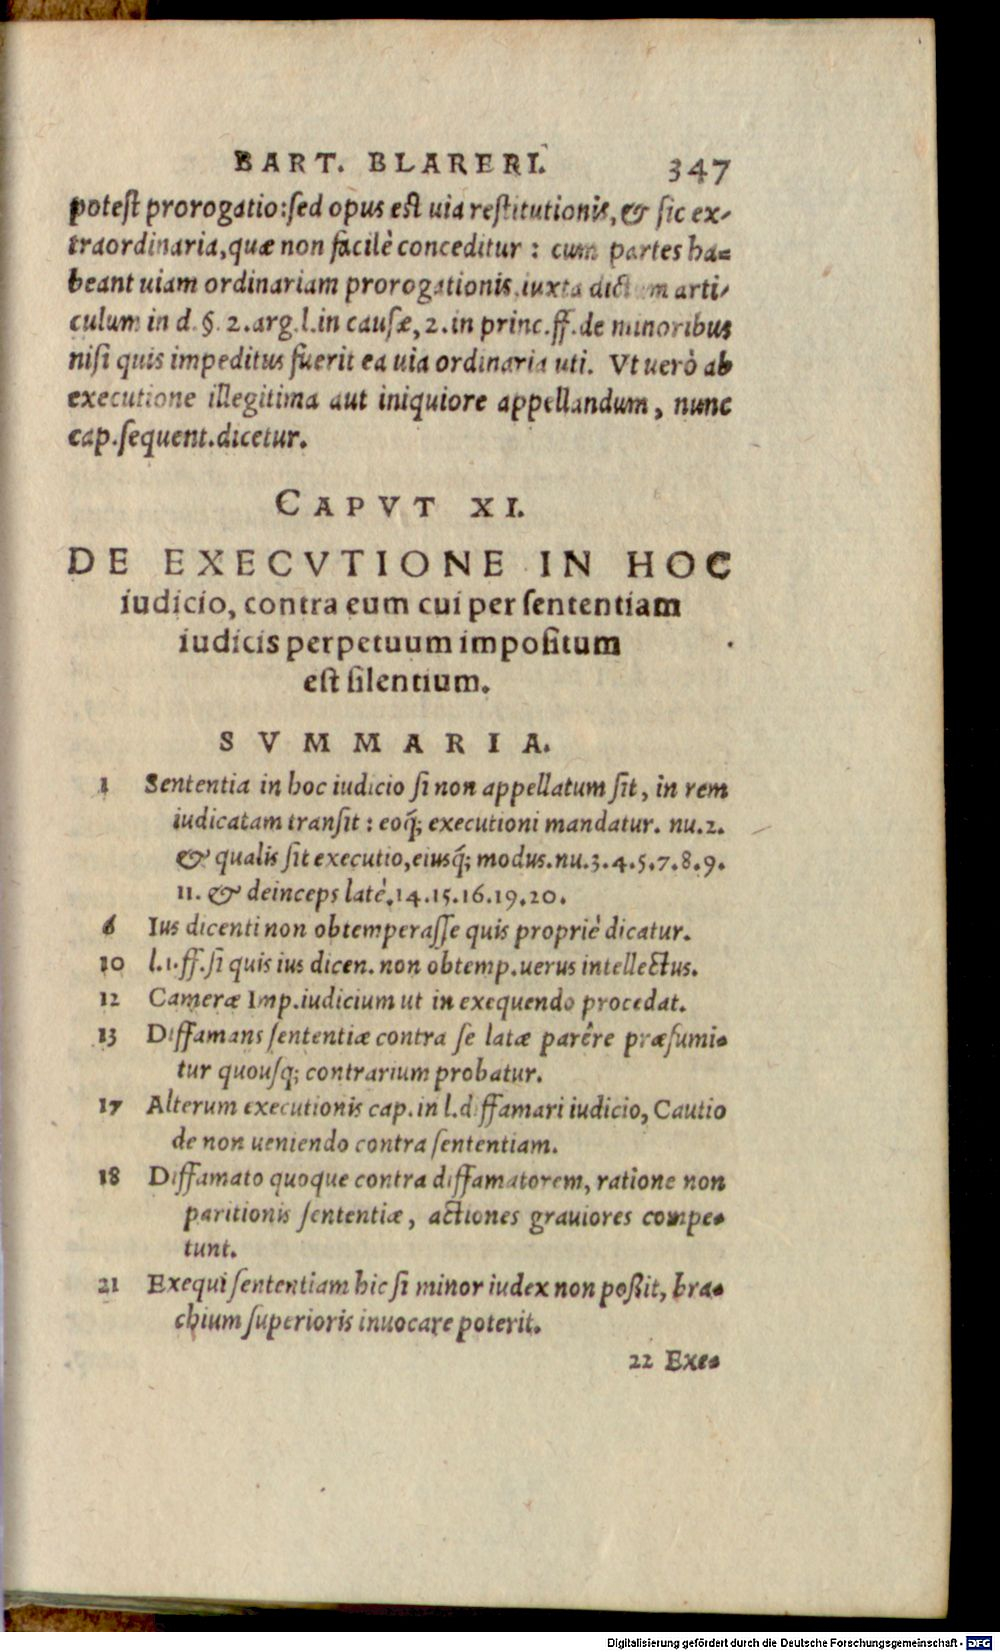 BART. BLARERI. 347
potest prorogatio: sed opus est uia restitutionis, & sic ex-
traordinaria, quæ non facilè conceditur : cum partes ha=
beant uiam ordinariam prorogationis iuxta dictum arti-
culum in d. §. 2. arg. l. in causæ, 2. in princ. ff. de minoribus
nisi quis impeditus fuerit ea uia ordinaria uti. Vt uerò ab
executione illegitima aut iniquiore appellandum, nunc
cap. sequent. dicetur.
CAPVT XI.
DE EXECVTIONE IN HOC
iudicio, contra eum cui per sententiam
iudicis perpetuum impositum
est silentium.
SVMMARIA.
1 Sententia in hoc iudicio si non appellatum sit, in rem
iudicatam transit : eoq́; executioni mandatur. nu. 2.
& qualis sit executio, eiusq́; modus. nu. 3. 4. 5. 7. 8. 9.
11. & deinceps latè. 14. 15. 16. 19. 20.
6 Ius dicenti non obtemperasse quis propriè dicatur.
10 l. 1. ff. si quis ius dicen. non obtemp. uerus intellectus.
12 Cameræ Imp. iudicium ut in exequendo procedat.
13 Diffamans sententiæ contra se latæ parêre præsumi-
tur quousq; contrarium probatur.
17 Alterum executionis cap. in l. diffamari iudicio, Cautio
de non ueniendo contra sententiam.
18 Diffamato quoque contra diffamatorem, ratione non
paritionis sententiæ, actiones grauiores compe-
tunt.
21 Exequi sententiam hic si minor iudex non possit, bra-
chium superioris inuocare poterit.
22 Exe-
Digitalisierung gefördert durch die Deutsche Forschungsgemeinschaft - DFG